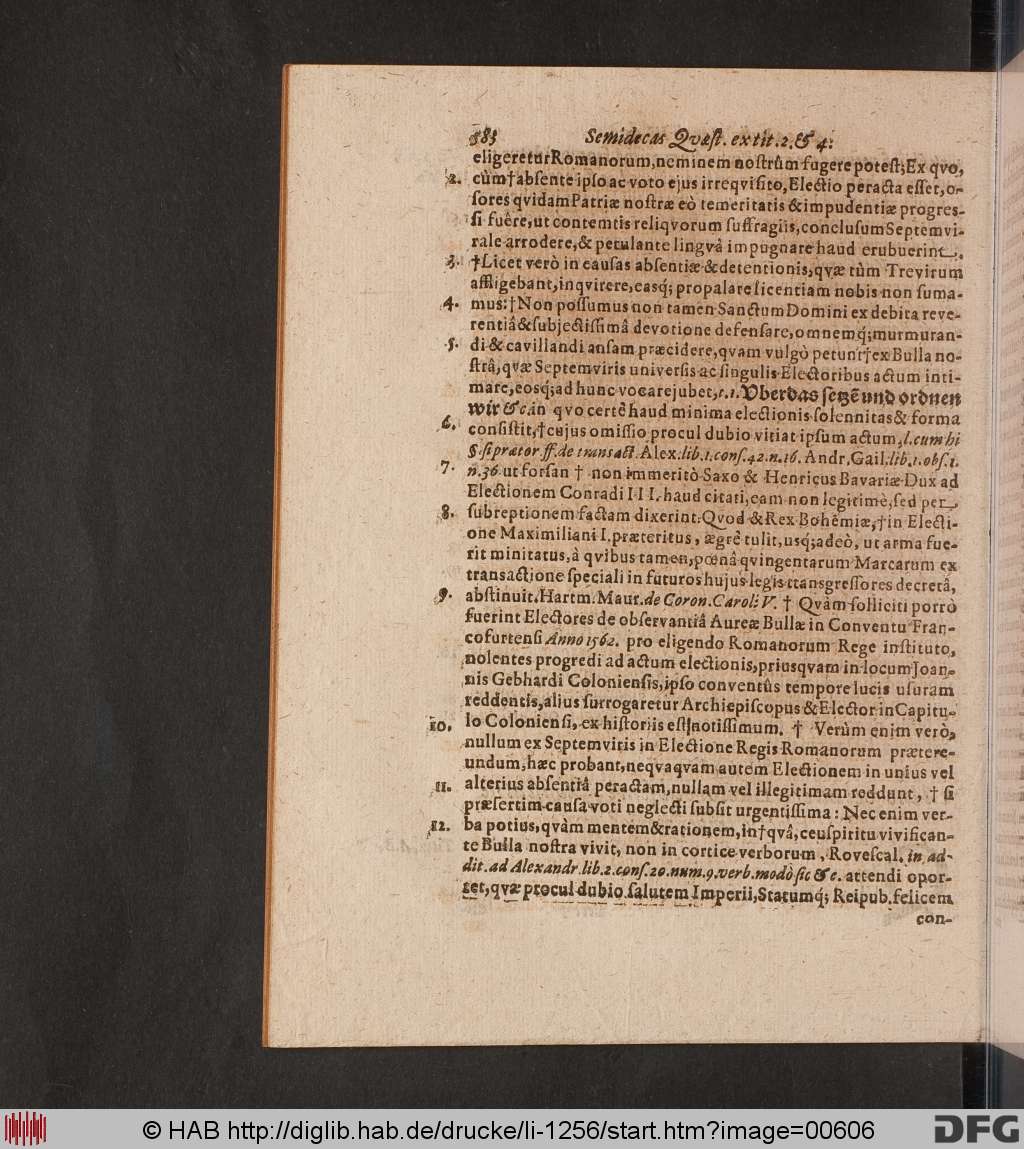 583 Semidecas Qvæst. ex tit. 2. & 4.
eligeretur Romanorum, neminem nostrûm fugere potest; Ex qvo,
2. cùm † absente ipso ac voto ejus irreqvisito, Electio peracta esset, o-
sores qvidam Patriæ nostræ eò temeritatis & impudentiæ progres-
si fuêre, ut contemtis reliqvorum suffragiis, conclusum Septemvi-
rale arrodere, & petulante lingvâ impugnare haud erubuerint.
3. † Licet verò in causas absentiæ & detentionis, qvæ tùm Trevirum
affligebant, inqvirere, easq; propalare licentiam nobis non suma-
4. mus: † Non possumus non tamen Sanctum Domini ex debita reve-
rentiâ & subjectissimâ devotione defensare, omnemq; murmuran-
5. di & cavillandi ansam præcidere, qvam vulgò petunt † ex Bulla no-
strâ, qvæ Septemviris universis ac singulis Electoribus actum inti-
mare, eosq; ad hunc vocare jubet, c. 1. Vberdas setzē und ordnen
wir & c. in qvo certè haud minima electionis solennitas & forma
6. consistit, † cujus omissio procul dubio vitiat ipsum actum, l. cum hi
§. si prætor ff. de transact. Alex. lib. 1. cons. 42. n. 16. Andr. Gail. lib. 1. obs. 1.
7. n. 36. ut forsan † non immeritò Saxo & Henricus Bavariæ Dux ad
Electionem Conradi III. haud citati, eam non legitimè, sed per
8. subreptionem factam dixerint. Qvod & Rex Bohêmiæ, † in Electi-
one Maximiliani I. præteritus, ægrè tulit, usq; adeò, ut arma fue-
rit minitatus, à qvibus tamen, pœnâ qvingentarum Marcarum ex
transactione speciali in futuros hujus legis transgressores decretâ,
9. abstinuit. Hartm. Maur. de Coron. Caroli V. † Qvàm solliciti porrò
fuerint Electores de observantiâ Aureæ Bullæ in Conventu Fran-
cofurtensi Anno 1562. pro eligendo Romanorum Rege instituto,
nolentes progredi ad actum electionis, priusqvam in locum Joan-
nis Gebhardi Coloniensis, ipso conventûs tempore lucis usuram
reddentis, alius surrogaretur Archiepiscopus & Elector in Capitu-
10. lo Coloniensi, ex historiis est notissimum. † Verùm enim verò,
nullum ex Septemviris in Electione Regis Romanorum prætere-
undum, hæc probant, neqvaqvam autem Electionem in unius vel
11. alterius absentiâ peractam, nullam vel illegitimam reddunt, † si
præsertim causa voti neglecti subsit urgentissima: Nec enim ver-
12. ba potius, qvàm mentem & rationem, in † qvâ, ceu spiritu vivifican-
te Bulla nostra vivit, non in cortice verborum, Rovescal. in ad-
dit. ad Alexandr. lib. 2. cons. 20. num. 9. verb. modò sic & c. attendi opor-
tet, qvæ procul dubio salutem Imperii, Statumq; Reipub. felicem
con-
© HAB http://diglib.hab.de/drucke/li-1256/start.htm?image=00606
DFG